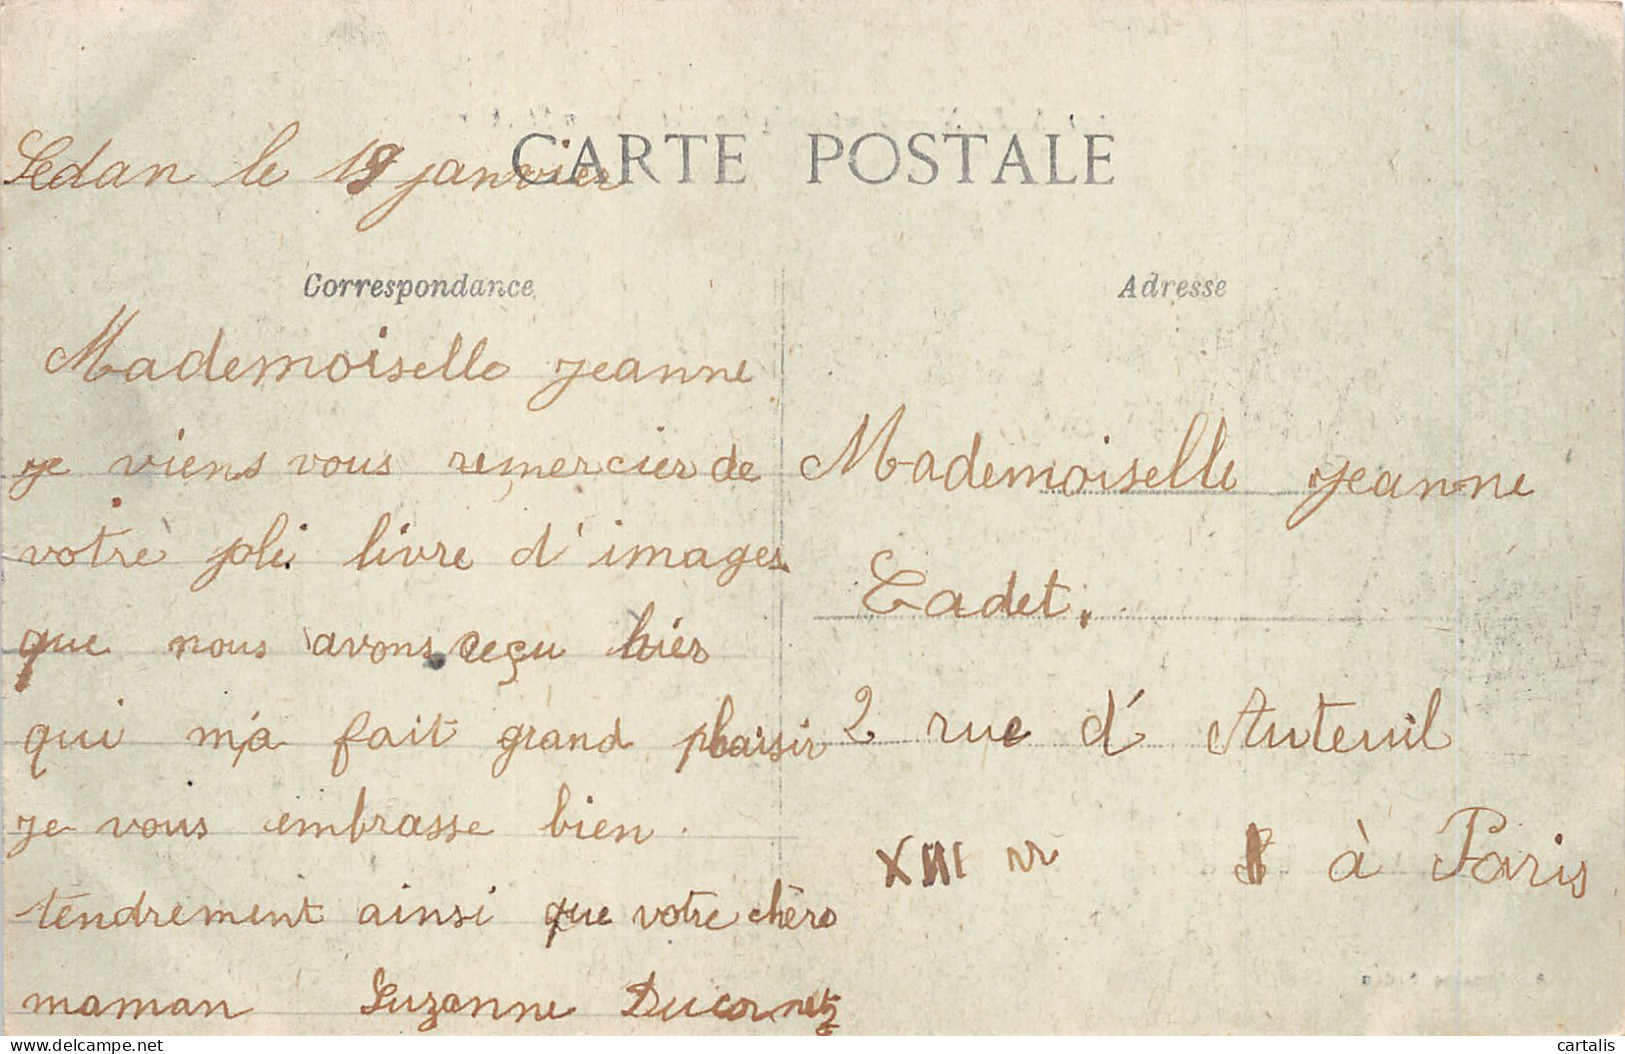 CARTE POSTALE
Sedan le 18 janvier
Correspondance
Mademoiselle Jeanne
je viens vous remercier de
votre joli livre d'images
que nous avons reçu hier
qui m'a fait grand plaisir
je vous embrasse bien.
tendrement ainsi que votre chère
maman Suzanne Ducornetz
Adresse
Mademoiselle Jeanne
Cadet.
2 rue d'Auteuil
à Paris
delcampe.net
cartalis